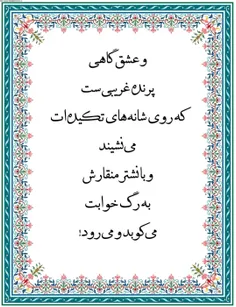 و عشق گاهی
پرنده غریبی ست
که روی شانه‌های تکیده‌ات
می‌نشیند
و با نشتر منقارش
به رگ خوابت
می‌کوبد و می‌رود!